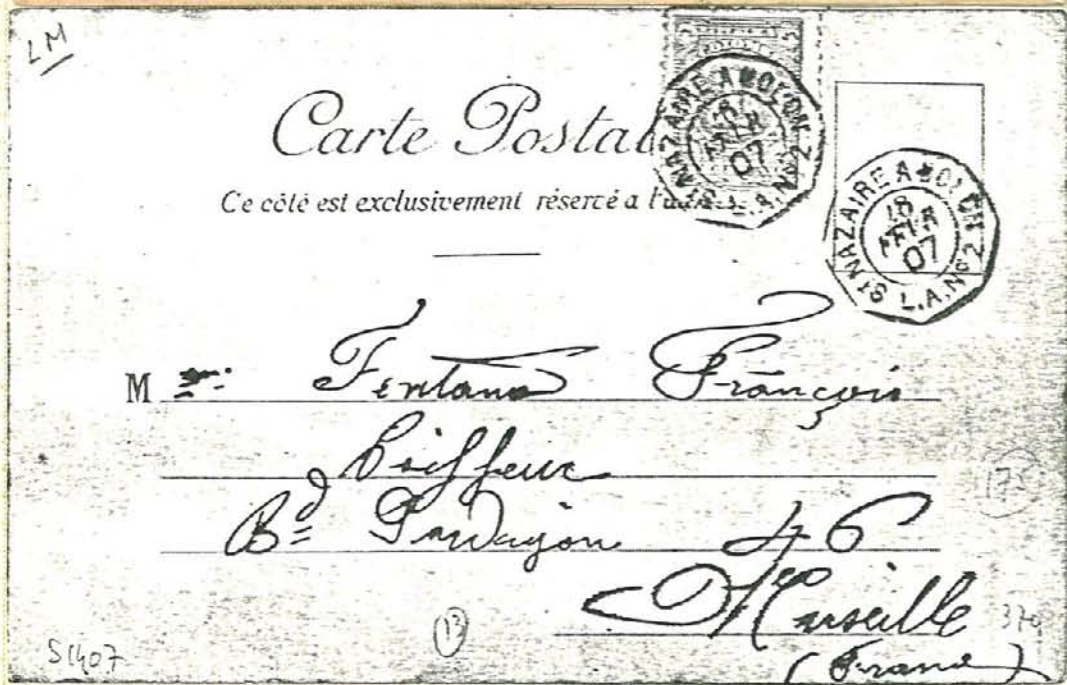 LM
Carte Postal
Ce côté est exclusivement réservé a l'a
ST NAZAIRE A COLON
18
FEVR
07
L.A.Nº2
ST NAZAIRE A COLON
18
FEVR
07
L.A.Nº2
M Fontana François
Coiffeur
Bd 46
Marseille
(France)
175
13
370
S1407